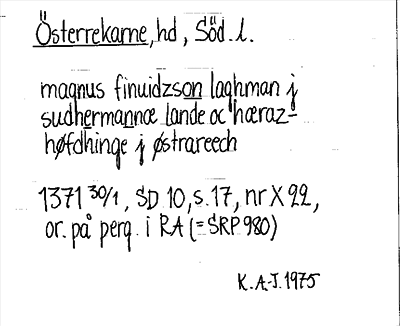 Österrekarne, hd, Söd. l.
magnus finuidzson laghman j
sudhermannæ lande oc hæraz-
høfdhinge j østrareech
1371 30/1, SD 10, s. 17, nr X 22,
or. på perg. i RA (= SRP 980)
K. A-J. 1975